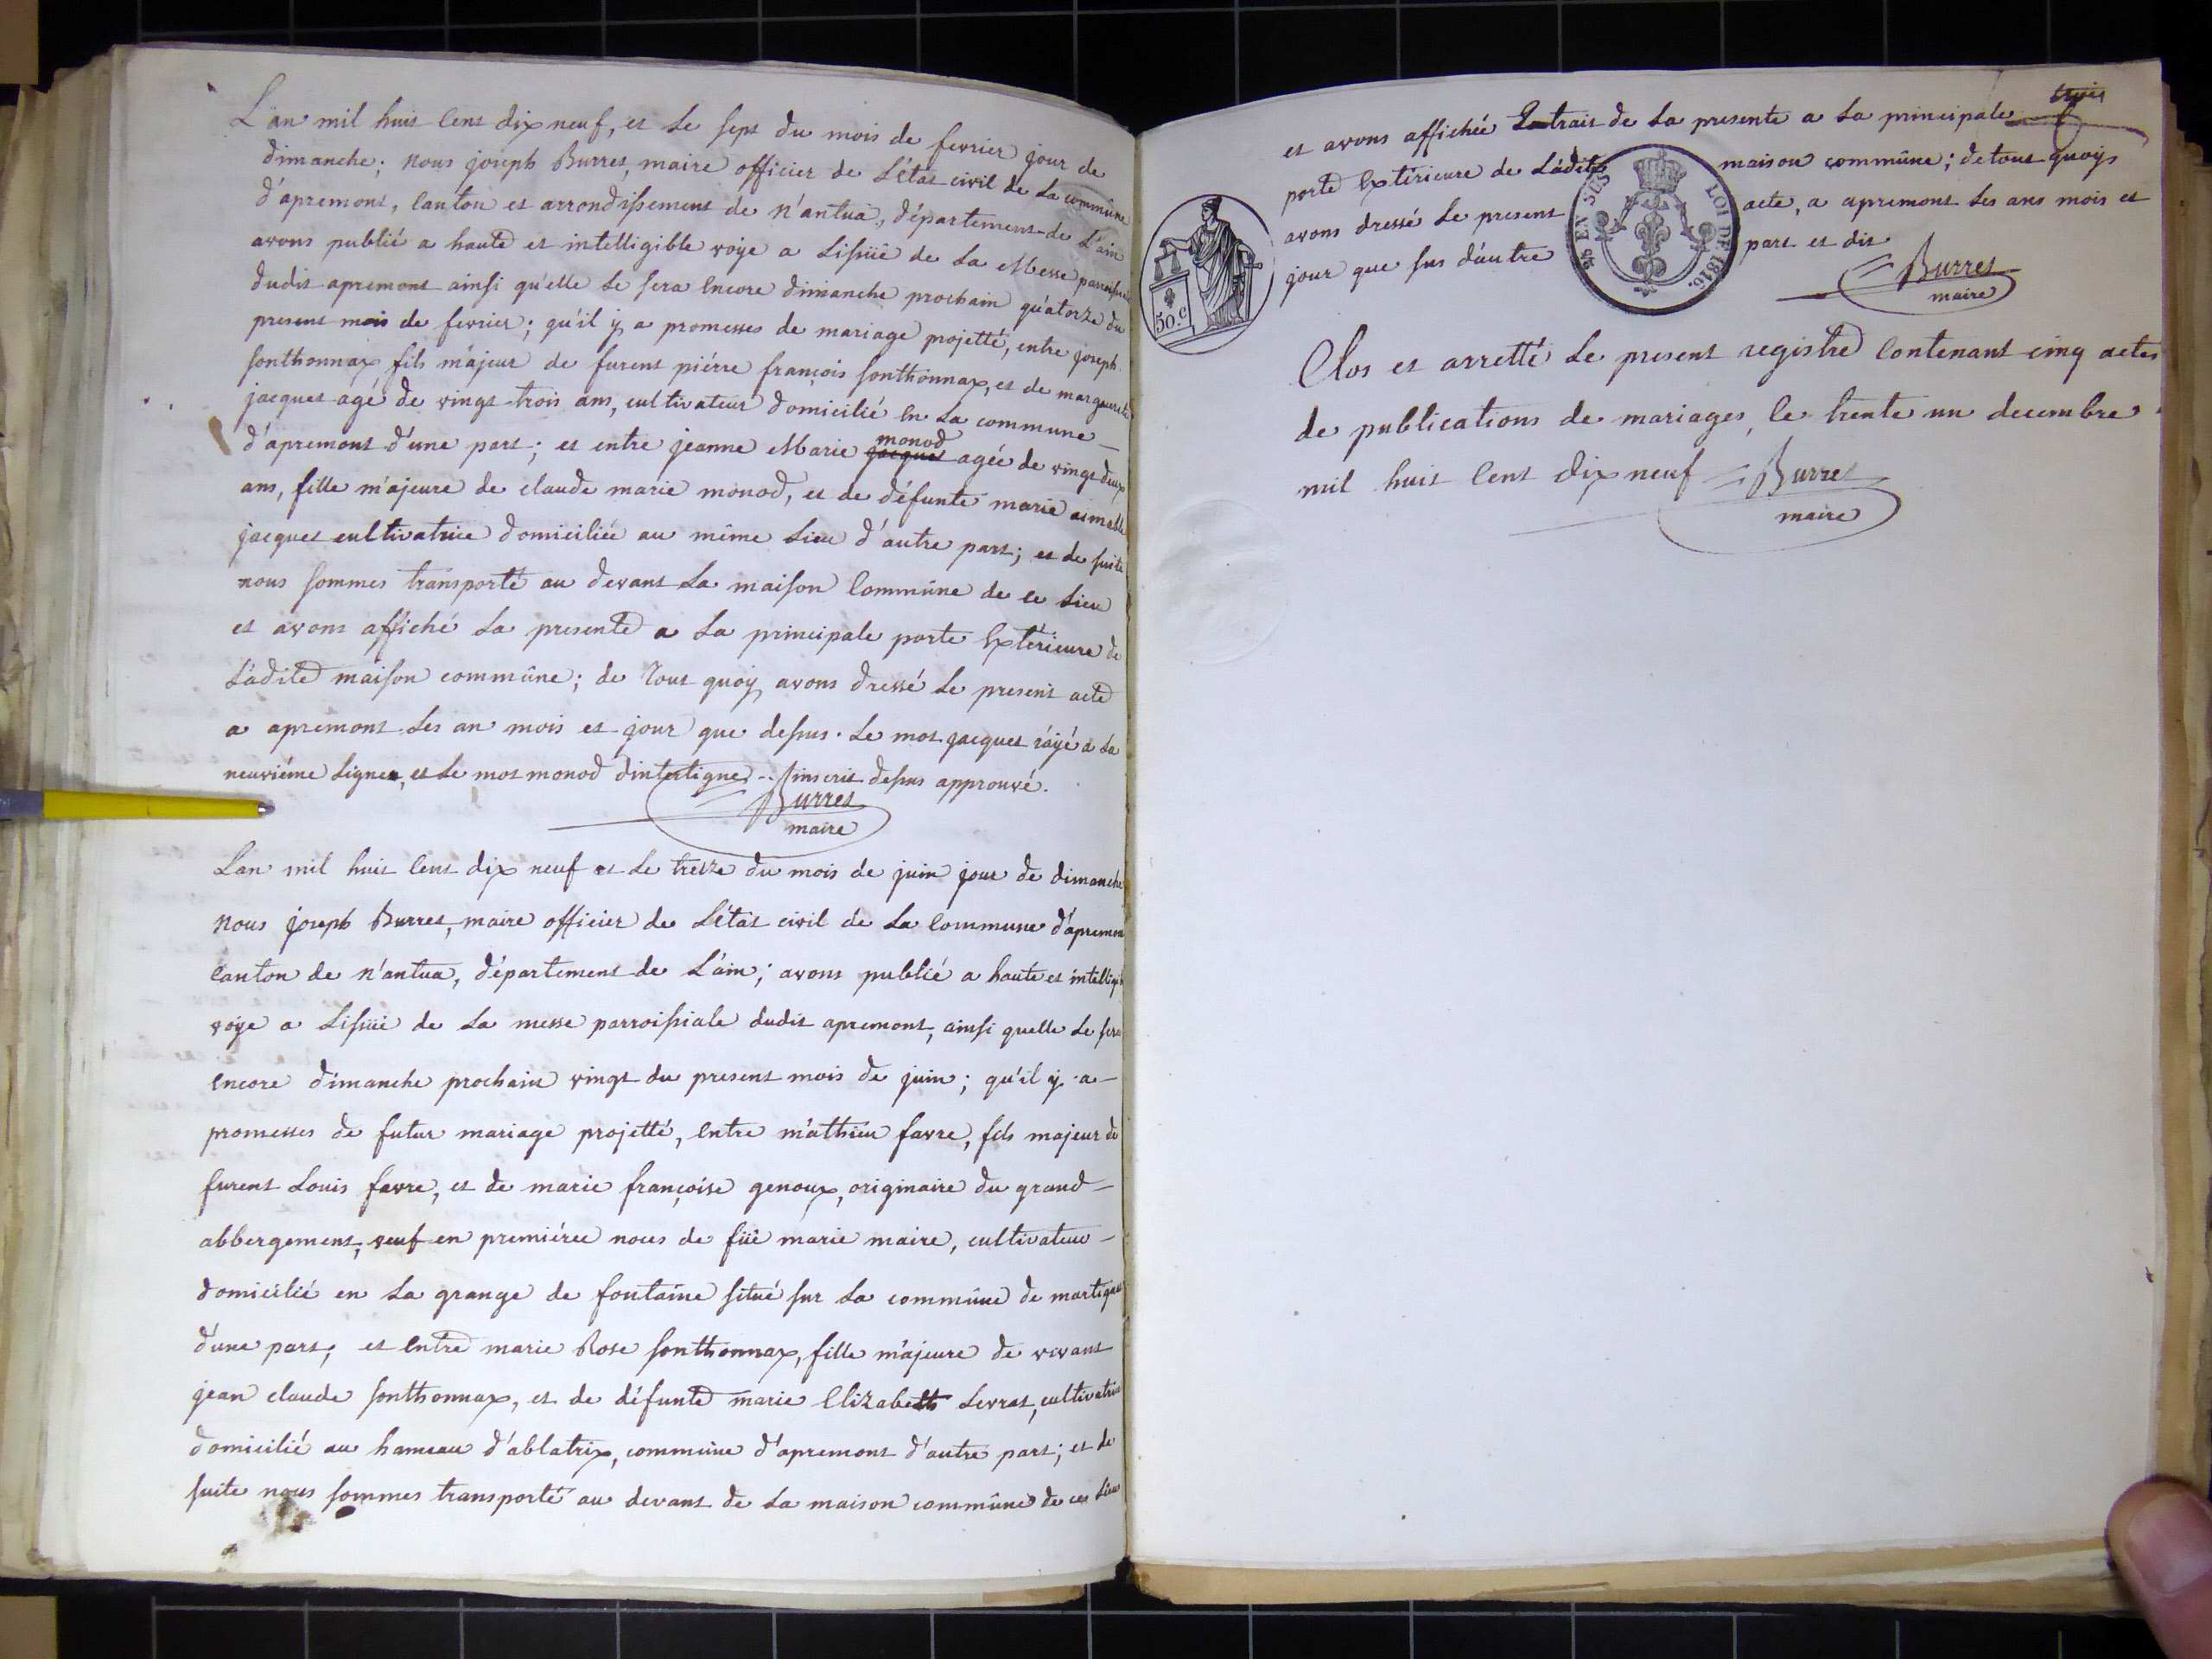 L'an mil huit Cent dix neuf, et Le sept du mois de fevrier jour de
dimanche; nous joseph Burret, maire officier de L'état civil de La commûne
d'apremont, Canton et arrondissement de n'antua, département de L'ain
avons publié a haute et intelligible voÿe a Lissüe de La Messe
dudit apremont ainsi qu'elle Le sera Encore dimanche prochain qu'atorze du
present mois de fevrier; qu'il ÿ a promesses de mariage projetté, entre joseph
sonthonnax fils m'ajeur de furent piérre françois sonthonnax, et de marguerite
jacquet agé de vingt-trois ans, cultivateur domicilié En La commune
d'apremont d'une part; et entre jeanne Marie jacquet monod agée de vingt deux
ans, fille m'ajeure de claude marie monod, et de défunte marie aimable
jacquet cultivatrice domiciliée au même Lieu d'autre part; et de suite
nous sommes transporté au devant La maison Commûne de ce Lieu
et avons affiché La presente a La principale porte Extérieure de
Ladite maison commûne; de Tout quoÿ avons dressé Le present acte
a apremont Les an mois et jour que dessus. Le mot jacquet raÿé a La
neuviéme Ligne, et Le mot monod d'intertigne inscrit dessus approuvé.
Burret
maire
L'an mil huit Cent dix neuf et Le treize du mois de juin jour de dimanche
nous joseph Burret, maire officier de L'état civil de La Commune d'apremont
Canton de n'antua, département de L'ain; avons publié a haute et intelligible
voÿe a Lissüe de La messe parroissiale dudit apremont, ainsi quelle Le sera
Encore dimanche prochain vingt du present mois de juin; qu'il ÿ a
promesses de futur mariage projetté, Entre m'athieu favre, fils majeur de
furent Louis favre, et de marie françoise genoux, originaire du grand
abbergement, veuf en premiéree noces de füe marie maire, cultivateur
domicilié en La grange de fontaine situé sur La commûne de martignat
d'une part; et Entre marie Rose sonthonnax, fille m'ajeure de vivant
jean claude sonthonnax, et de défunte marie Elizabeth Levrat, cultivatrice
domicilié au hameau d'ablatrix, commûne d'apremont d'autre part; et de
suite nous sommes transporté au devant de La maison commûne de ces Lieu
trois
et avons affichée Extrait de La presente a La principale
porte Extérieure de Ladite maison commûne; de tout quoÿs
avons dressé Le present acte, a apremont Les ans mois et
jour que sus d'autre part et dit
Burret
maire
50.c
25 EN SUS LOI DE 1816.
Clos et arretté Le present registre Contenant cinq actes
de publications de mariages, le trente un decembre
mil huit Cent dix neuf Burret
maire